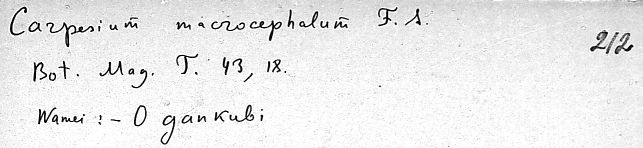 Carpesium macrocephalum F. S.
212
Bot. Mag. T. 43, 18.
Wamei : - O gankubi